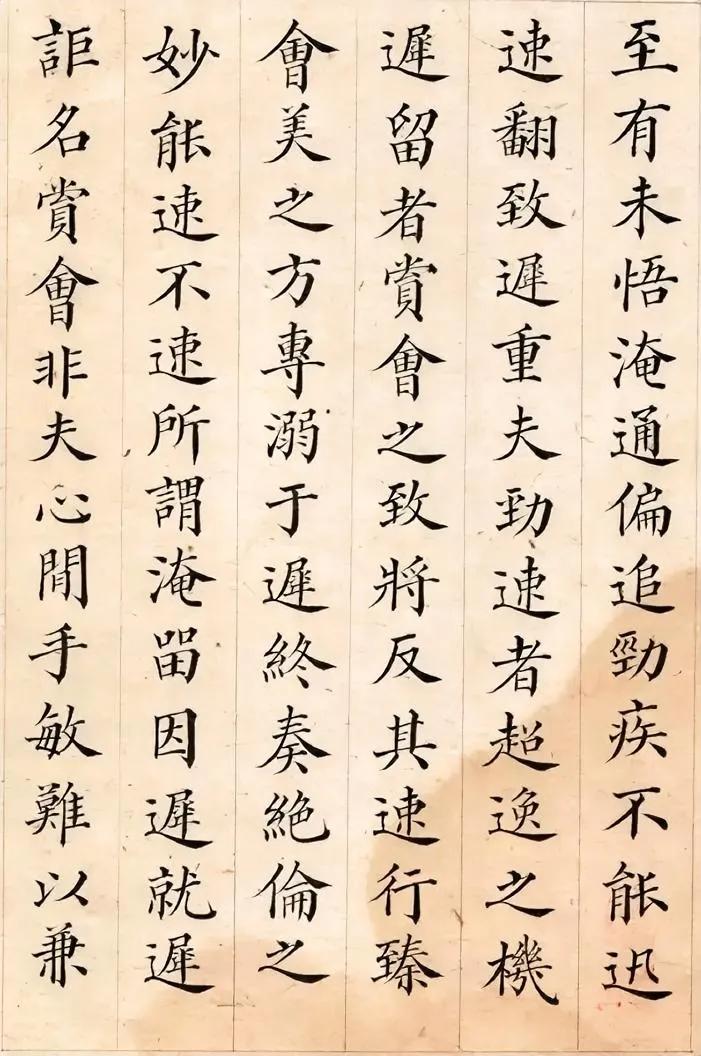 至有未悟淹通偏追勁疾不能迅
速翻致遲重夫勁速者超逸之機
遲留者賞會之致將反其速行臻
會美之方專溺于遲終奏絶倫之
妙能速不速所謂淹留因遲就遲
詎名賞會非夫心閒手敏難以兼